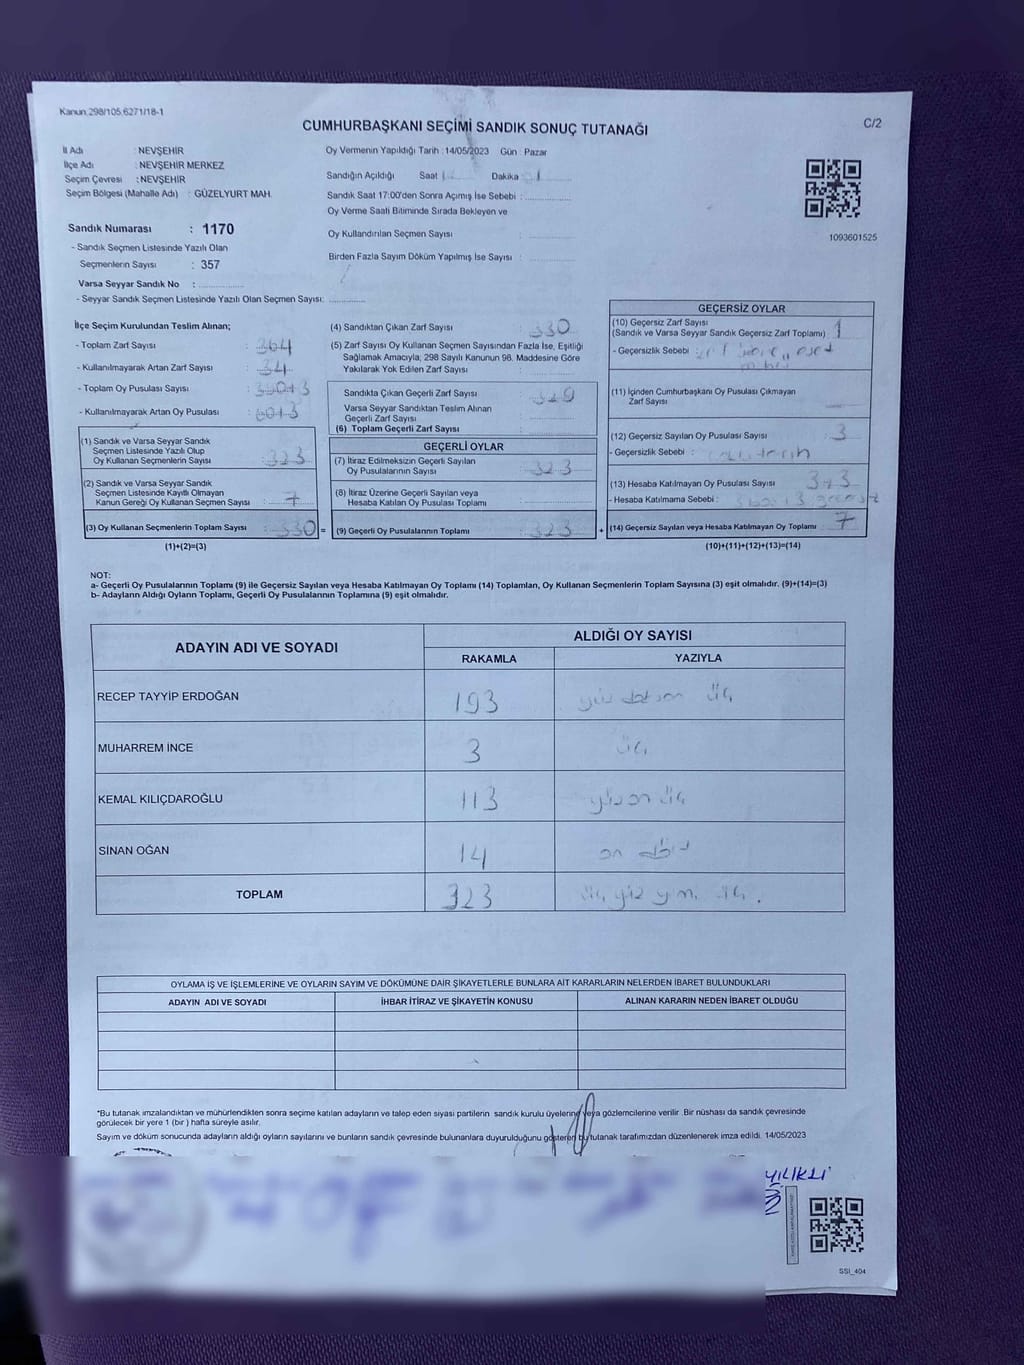 Kanun 298/105,6271/18-1
C/2
CUMHURBAŞKANI SEÇİMİ SANDIK SONUÇ TUTANAĞI
İl Adı : NEVŞEHİR
İlçe Adı : NEVŞEHİR MERKEZ
Seçim Çevresi : NEVŞEHİR
Seçim Bölgesi (Mahalle Adı) : GÜZELYURT MAH.
Oy Vermenin Yapıldığı Tarih : 14/05/2023 Gün : Pazar
Sandığın Açıldığı Saat Dakika
Sandık Saat 17:00'den Sonra Açımış İse Sebebi :
Oy Verme Saati Bitiminde Sırada Bekleyen ve
Oy Kullandırılan Seçmen Sayısı :
Birden Fazla Sayım Döküm Yapılmış İse Sayısı :
1093601525
Sandık Numarası : 1170
- Sandık Seçmen Listesinde Yazılı Olan
Seçmenlerin Sayısı : 357
Varsa Seyyar Sandık No :
- Seyyar Sandık Seçmen Listesinde Yazılı Olan Seçmen Sayısı:
İlçe Seçim Kurulundan Teslim Alınan;
- Toplam Zarf Sayısı : 364
- Kullanılmayarak Artan Zarf Sayısı : 34
- Toplam Oy Pusulası Sayısı :
- Kullanılmayarak Artan Oy Pusulası :
(1) Sandık ve Varsa Seyyar Sandık
Seçmen Listesinde Yazılı Olup
Oy Kullanan Seçmenlerin Sayısı : 323
(2) Sandık ve Varsa Seyyar Sandık
Seçmen Listesinde Kayıtlı Olmayan
Kanun Gereği Oy Kullanan Seçmen Sayısı : 7
(3) Oy Kullanan Seçmenlerin Toplam Sayısı 330 =
(1)+(2)=(3)
(4) Sandıktan Çıkan Zarf Sayısı : 330
(5) Zarf Sayısı Oy Kullanan Seçmen Sayısından Fazla İse, Eşitliği
Sağlamak Amacıyla; 298 Sayılı Kanunun 98. Maddesine Göre
Yakılarak Yok Edilen Zarf Sayısı
Sandıkta Çıkan Geçerli Zarf Sayısı : 329
Varsa Seyyar Sandıktan Teslim Alınan
Geçerli Zarf Sayısı
(6) Toplam Geçerli Zarf Sayısı
GEÇERLİ OYLAR
(7) İtiraz Edilmeksizin Geçerli Sayılan
Oy Pusulalarının Sayısı : 323
(8) İtiraz Üzerine Geçerli Sayılan veya
Hesaba Katılan Oy Pusulası Toplamı
(9) Geçerli Oy Pusulalarının Toplamı : 323 +
GEÇERSİZ OYLAR
(10) Geçersiz Zarf Sayısı
(Sandık ve Varsa Seyyar Sandık Geçersiz Zarf Toplamı) 1
- Geçersizlik Sebebi :
(11) İçinden Cumhurbaşkanı Oy Pusulası Çıkmayan
Zarf Sayısı
(12) Geçersiz Sayılan Oy Pusulası Sayısı : 3
- Geçersizlik Sebebi :
(13) Hesaba Katılmayan Oy Pusulası Sayısı :
- Hesaba Katılmama Sebebi :
(14) Geçersiz Sayılan veya Hesaba Katılmayan Oy Toplamı 7
(10)+(11)+(12)+(13)=(14)
NOT:
a- Geçerli Oy Pusulalarının Toplamı (9) ile Geçersiz Sayılan veya Hesaba Katılmayan Oy Toplamı (14) Toplamları, Oy Kullanan Seçmenlerin Toplam Sayısına (3) eşit olmalıdır. (9)+(14)=(3)
b- Adayların Aldığı Oyların Toplamı, Geçerli Oy Pusulalarının Toplamına (9) eşit olmalıdır.
ADAYIN ADI VE SOYADI
ALDIĞI OY SAYISI
RAKAMLA YAZIYLA
RECEP TAYYİP ERDOĞAN 193 yüz doksan üç
MUHARREM İNCE 3 üç
KEMAL KILIÇDAROĞLU 113 yüz on üç
SİNAN OĞAN 14 on dört
TOPLAM 323 üç yüz yirmi üç.
OYLAMA İŞ VE İŞLEMLERİNE VE OYLARIN SAYIM VE DÖKÜMÜNE DAİR ŞİKAYETLERLE BUNLARA AİT KARARLARIN NELERDEN İBARET BULUNDUKLARI
ADAYIN ADI VE SOYADI İHBAR İTİRAZ VE ŞİKAYETİN KONUSU ALINAN KARARIN NEDEN İBARET OLDUĞU
*Bu tutanak imzalandıktan ve mühürlendikten sonra seçime katılan adayların ve talep eden siyasi partilerin sandık kurulu üyelerine veya gözlemcilerine verilir .Bir nüshası da sandık çevresinde
görülecek bir yere 1 (bir ) hafta süreyle asılır.
Sayım ve döküm sonucunda adayların aldığı oyların sayılarını ve bunların sandık çevresinde bulunanlara duyurulduğunu gösteren bu tutanak tarafımızdan düzenlenerek imza edildi. 14/05/2023
SSI_404